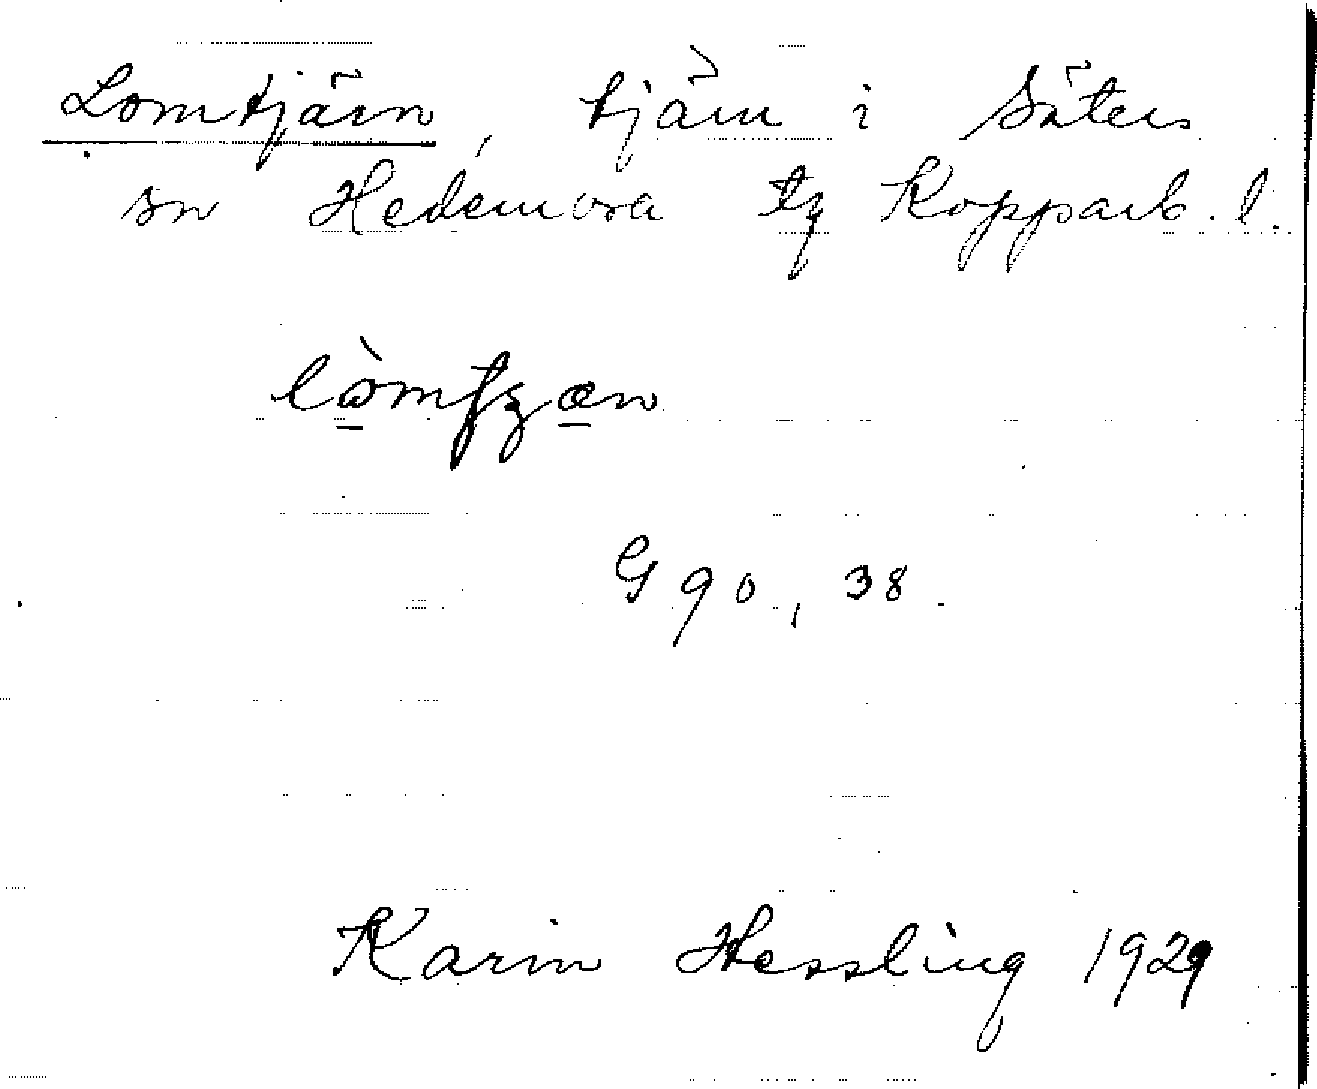 Lomtjärn, tjärn i Säters
sn Hedemora tg Kopparb. l.
G 90, 38.
Karin Hessling 1929